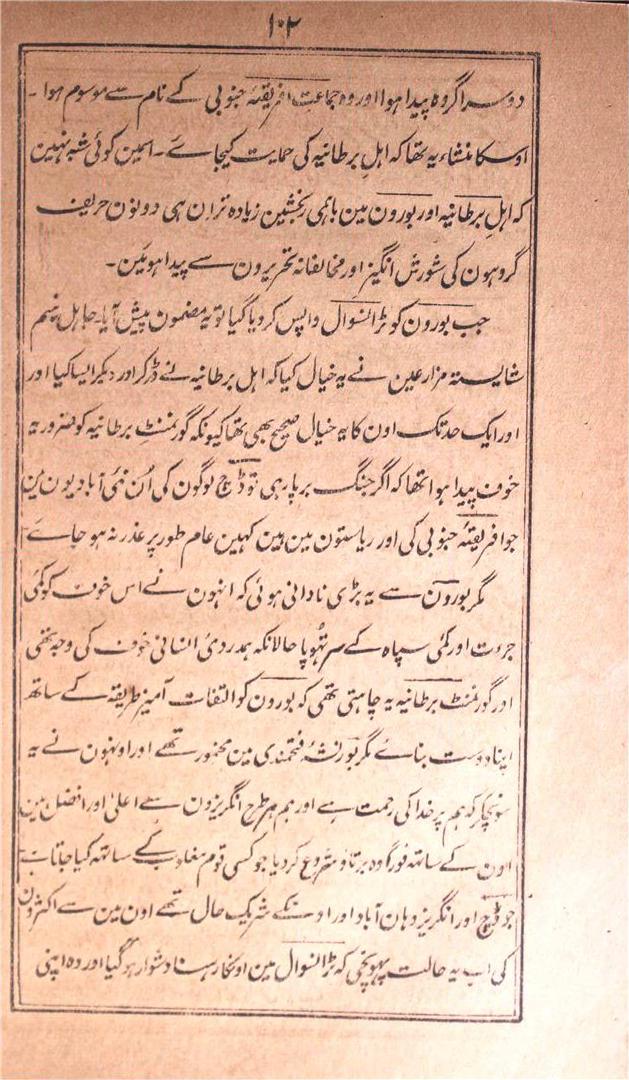 ۱۰۲
دوسرا گروہ پیدا ہوا اور وہ جماعت افریقۂ جنوبی کے نام سے موسوم ہوا۔
اوسکا منشاء یہ تھا کہ اہل برطانیہ کی حمایت کیجائے۔ اسمین کوئی شبہ نہین
کہ اہلِ برطانیہ اور بورون مین باہمی رنجشین زیادہ تر ان ہی دونون حریف
گروہون کی شورش انگیز اور مخالفانہ تحریرون سے پیدا ہوئین۔
جب بورون کو ٹرانسوال واپس کر دیا گیا تو یہ مضمون پیش آیا۔ جاہل نیم
شایستہ مزارعین نے یہ خیال کیا کہ اہل برطانیہ نے ڈر کر اور دبکر ایسا کیا اور
اور ایک حد تک اون کا یہ خیال صحیح بھی تھا کیونکہ گورنمنٹ برطانیہ کو ضرور یہ
خوف پیدا ہوا تھا کہ اگر جنگ برپا رہی تو ڈچ لوگون کی اُن نئی آبادیون مین
جو افریقۂ جنوبی کی اور ریاستون مین ہین کہین عام طور پر غدر نہ ہو جاے
مگر بورون سے یہ بڑی نادانی ہوئی کہ انہون نے اس خوف کو کمی
جروت اور کمی سپاہ کے سر تھوپا حالانکہ ہمدردی انسانی خوف کی وجہ تھی
اور گورنمنٹ برطانیہ یہ چاہتی تھی کہ بورون کو التفات آمیز طریقہ کے ساتھ
اپنا دوست بنائے مگر بور نشۂ فتحمندی مین مخمور تھے اور اونہون نے یہ
سونچکر کہ ہم پر خدا کی رحمت ہے اور ہم ہر طرح انگریزون سے اعلیٰ اور افضل ہین
اون کے ساتھ فوراً وہ برتاؤ شروع کر دیا جو کسی قوم مغلوب کے ساتھ کیا جاتا ہے
جو ڈچ اور انگریز وہان آباد اور اونکے شریک حال تھے اون مین سے اکثرون
کی اب یہ حالت پہونچی کہ ٹرانسوال مین اونکا رہنا دشوار ہو گیا اور وہ اپنی